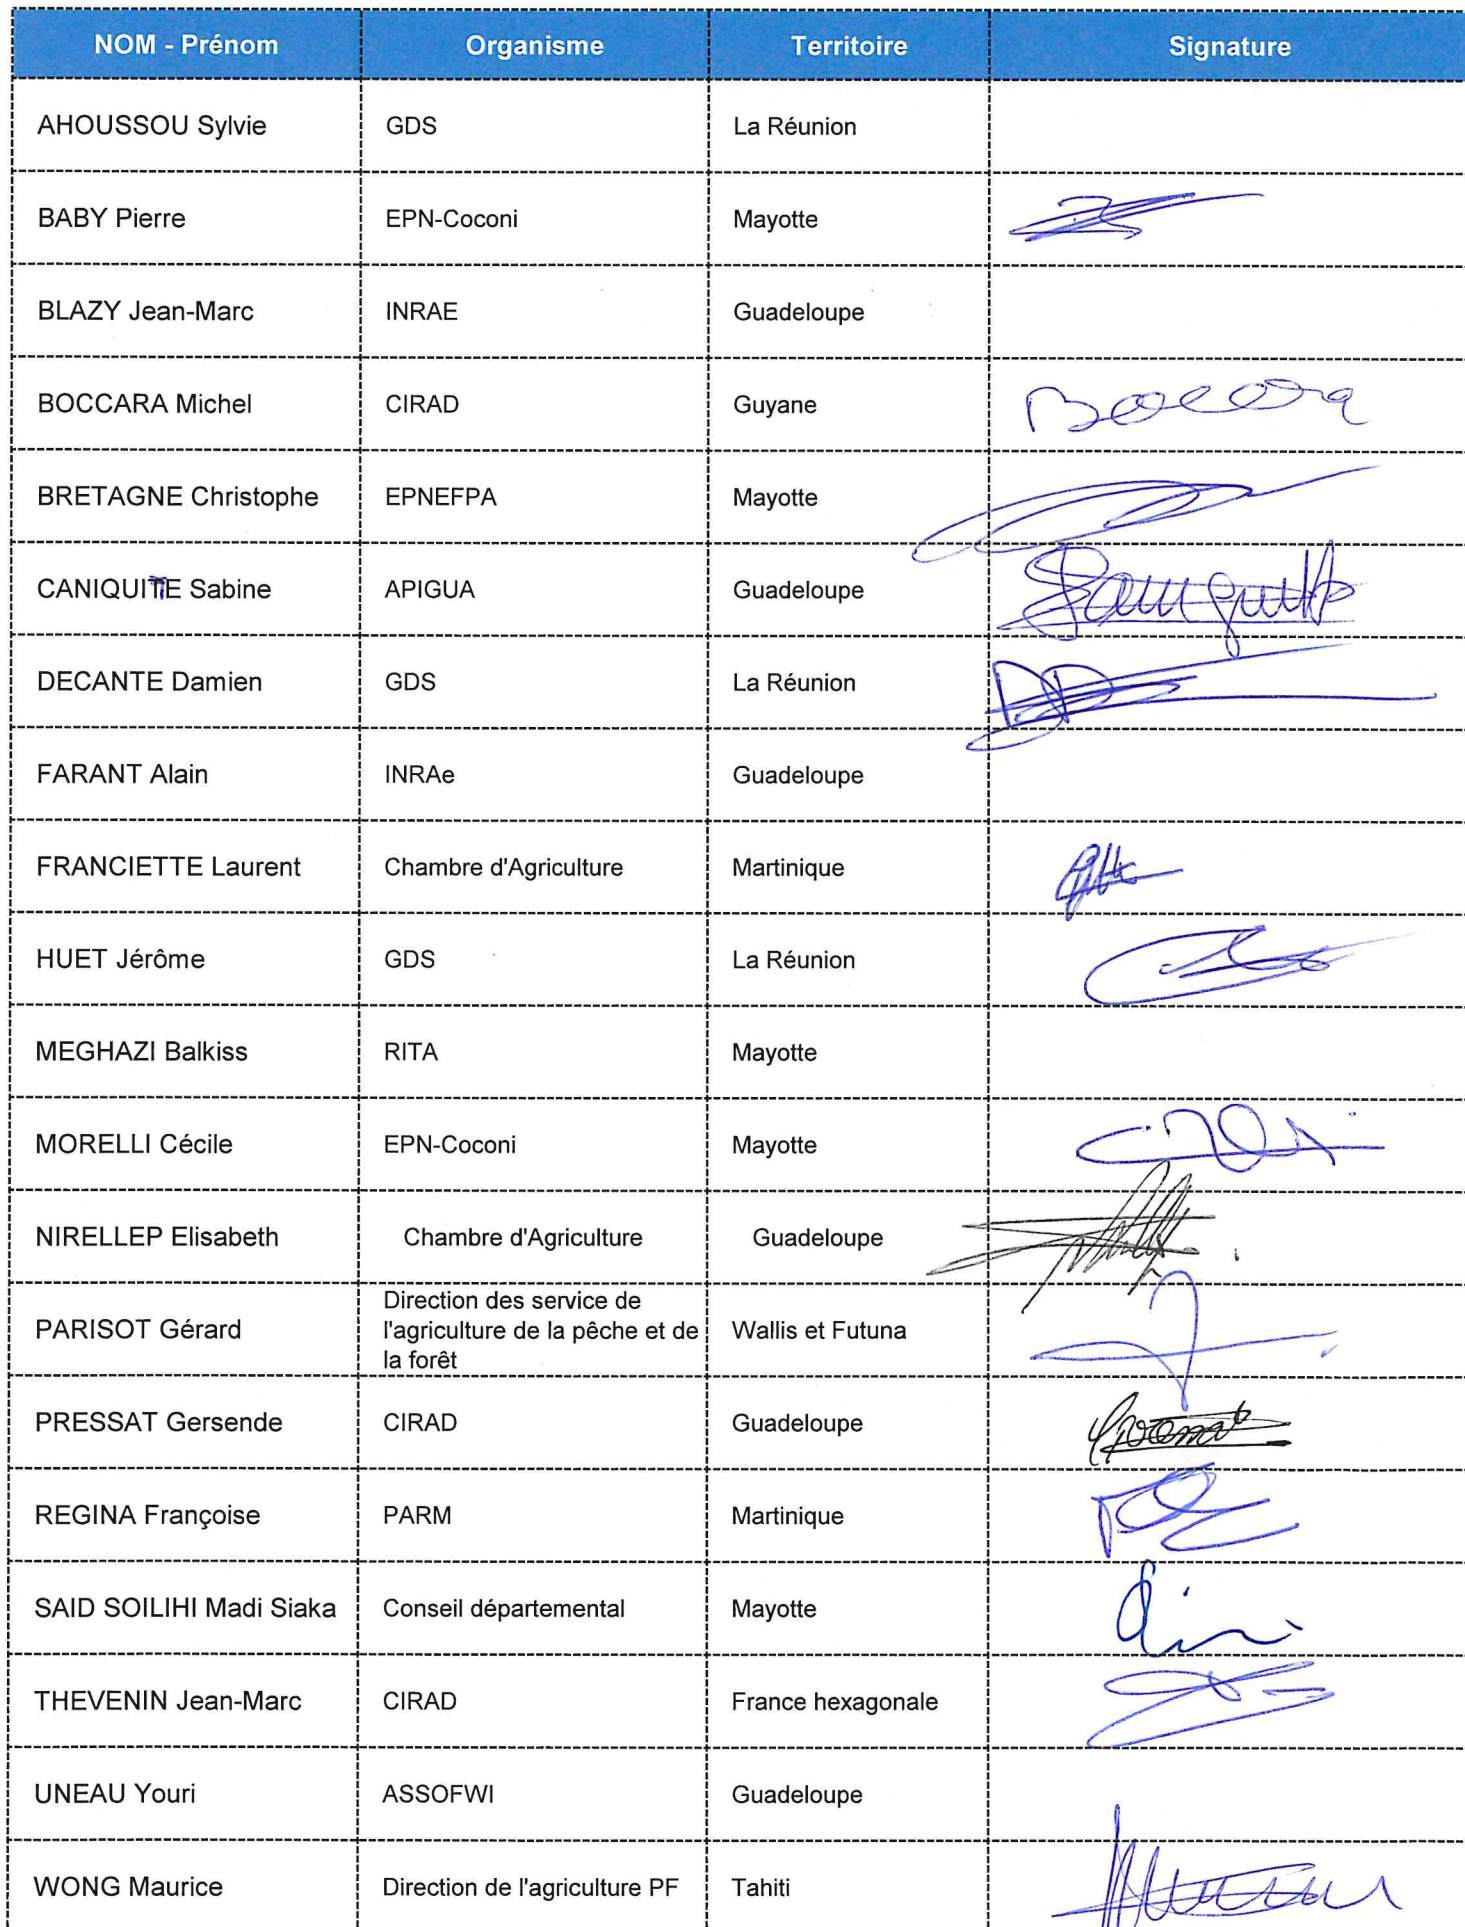 NOM - Prénom Organisme Territoire Signature
AHOUSSOU Sylvie GDS La Réunion
BABY Pierre EPN-Coconi Mayotte
BLAZY Jean-Marc INRAE Guadeloupe
BOCCARA Michel CIRAD Guyane Boccara
BRETAGNE Christophe EPNEFPA Mayotte
CANIQUITE Sabine APIGUA Guadeloupe
DECANTE Damien GDS La Réunion
FARANT Alain INRAe Guadeloupe
FRANCIETTE Laurent Chambre d'Agriculture Martinique
HUET Jérôme GDS La Réunion
MEGHAZI Balkiss RITA Mayotte
MORELLI Cécile EPN-Coconi Mayotte
NIRELLEP Elisabeth Chambre d'Agriculture Guadeloupe
Direction des service de
PARISOT Gérard l'agriculture de la pêche et de Wallis et Futuna
la forêt
PRESSAT Gersende CIRAD Guadeloupe
REGINA Françoise PARM Martinique
SAID SOILIHI Madi Siaka Conseil départemental Mayotte
THEVENIN Jean-Marc CIRAD France hexagonale
UNEAU Youri ASSOFWI Guadeloupe
WONG Maurice Direction de l'agriculture PF Tahiti